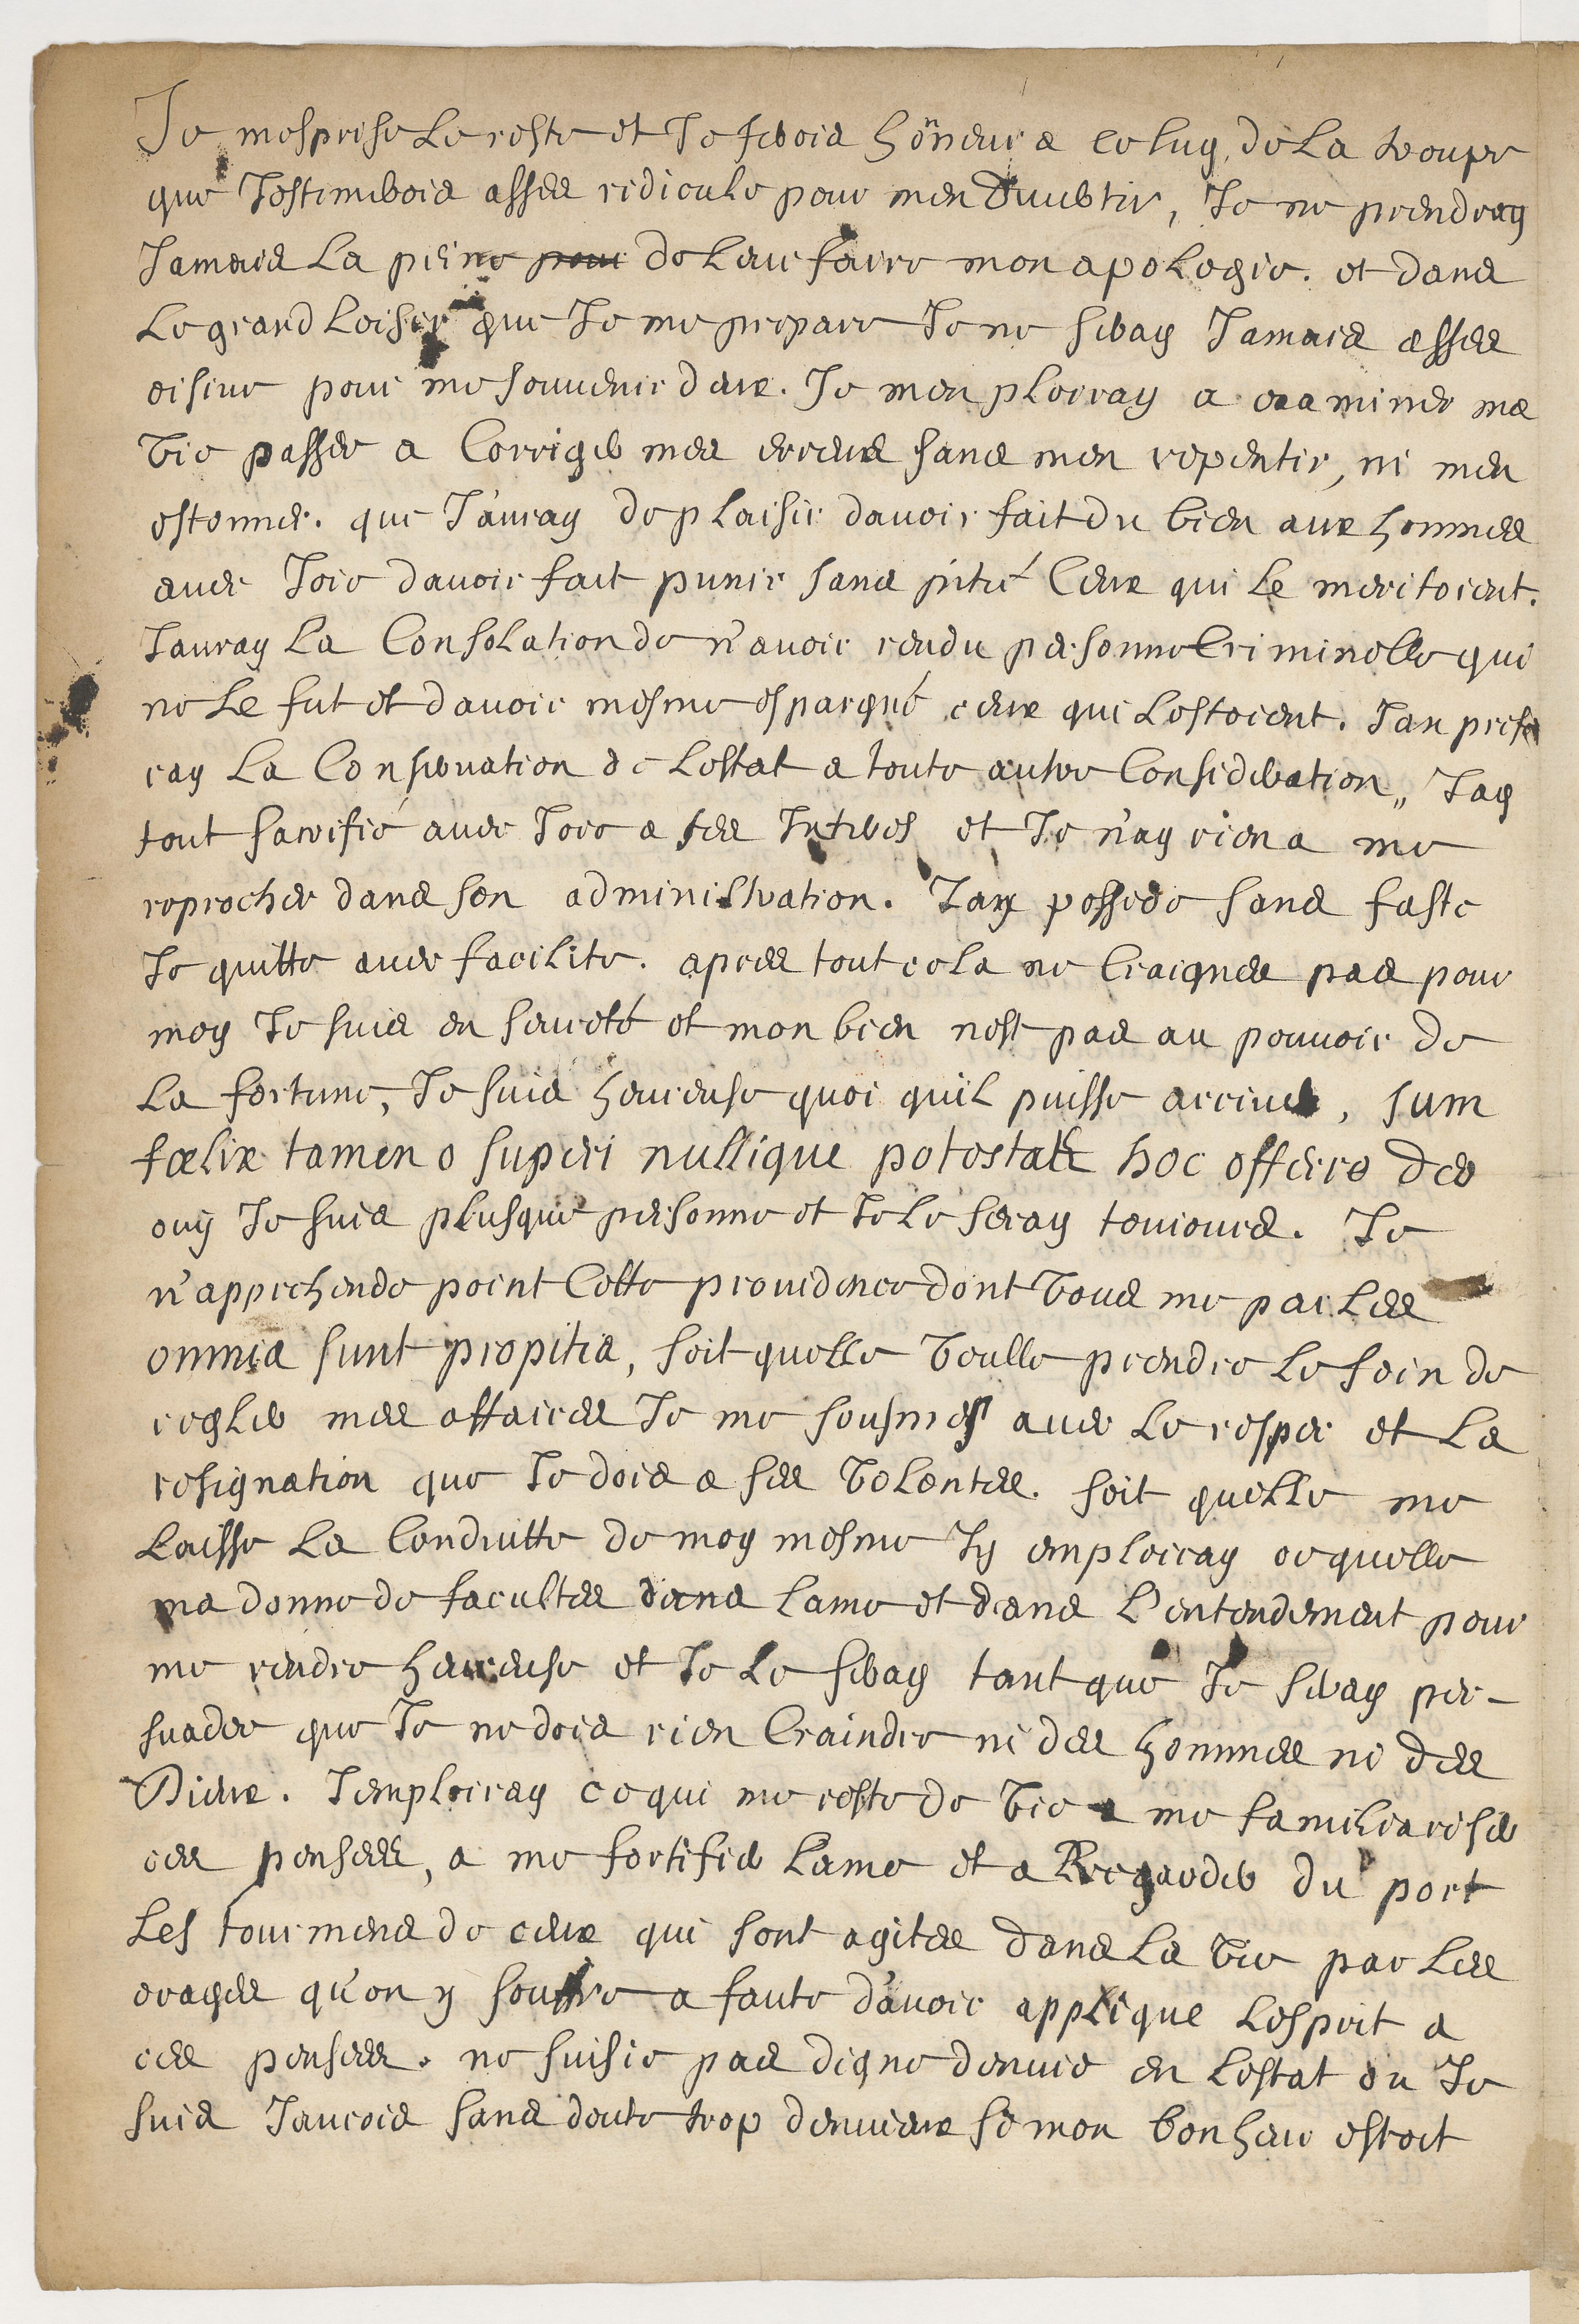 Je mesprise le reste et Je ferois honneur a celuy de la troupe
que Jestimerois asses ridicule pour men diuertir, Je ne prendray
Jamais la peine pour de leur faire mon apologie. et dans
le grand loisir que Je me prepare Je ne seray Jamais asses
oisiue pour me souuenir deux. Je men ploiray a examiner ma
vie passee a Corriger mes erreurs sans men repentir, ni men
estonner. que J'auray de plaisir dauoir fait du bien aux hommes
auec Joie dauoir fait punir sans pitié Ceux qui le meritoient.
Jauray la Consolation de n'auoir rendu personne Criminelle qui
ne le fut et dauoir mesme espargné ceux qui lestoient. Jay prefe
ray la Conseruation de lestat a toute autre Consideration, Jay
tout sacrifié auec Joie a ses Interes et Je n'ay rien a me
reprocher dans son administration. Jay possede sans faste
Je quitte auec facilite. apres tout cela ne Craignes pas pour
moy Je suis en seureté et mon bien nest pas au pouuoir de
la fortune, Je suis heureuse quoi quil puisse arriuer, sum
foelix tamen o superi nullique potestas hoc offerre deo
ouy Je suis plusque personne et Je le seray tousiours. Je
n'apprehende point Cette prouidence dont vous me parles
omnia sunt propitia, soit quelle veulle prendre le soin de
regler mes affaires Je me sousmes auec le respec et la
resignation que Je dois a ses volontes. soit quelle me
laisse la Conduitte de moy mesme Jy emploiray ce quelle
ma donne de facultes dans lame et dans l'entendement pour
me rendre heureuse et Je le seray tant que Je seray per-
suadee que Je ne dois rien Craindre ni des hommes ni des
Dieux. Jemploiray ce qui me reste de vie a me familiariser
ces pensees, a me fortifier lame et a Regarder du port
les tourmens de ceux qui sont agites dans la vie par les
orages qu'on y souffre a faute d'auoir applique lesprit a
ces pensees. ne suisie pas digne denuie en lestat ou Je
suis Jaurois sans doute trop denuieux si mon bonheur estoit